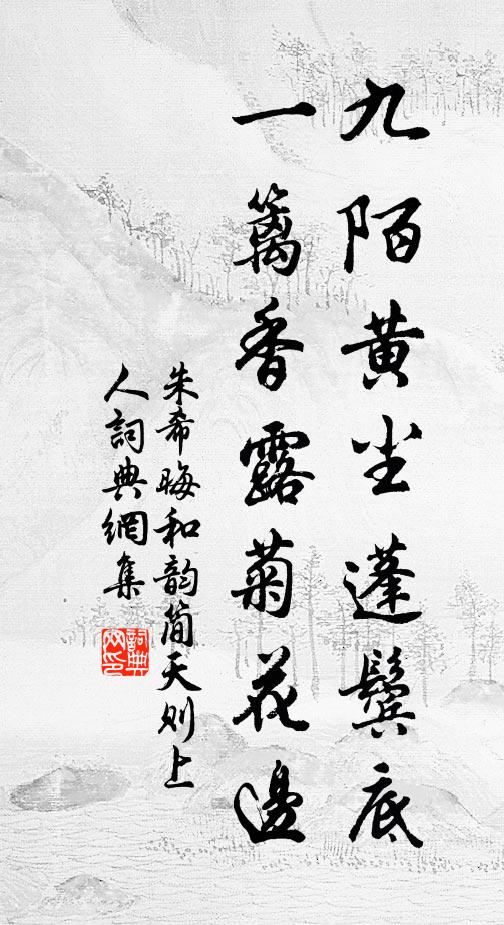 九陌黄尘蓬鬢底
一籬香露菊花邊
朱希晦和韵简天则上
人詞典網集
詞典
网印